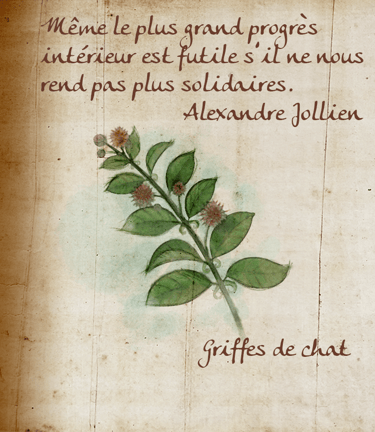 Même le plus grand progrès
intérieur est futile s'il ne nous
rend pas plus solidaires.
Alexandre Jollien
Griffes de chat